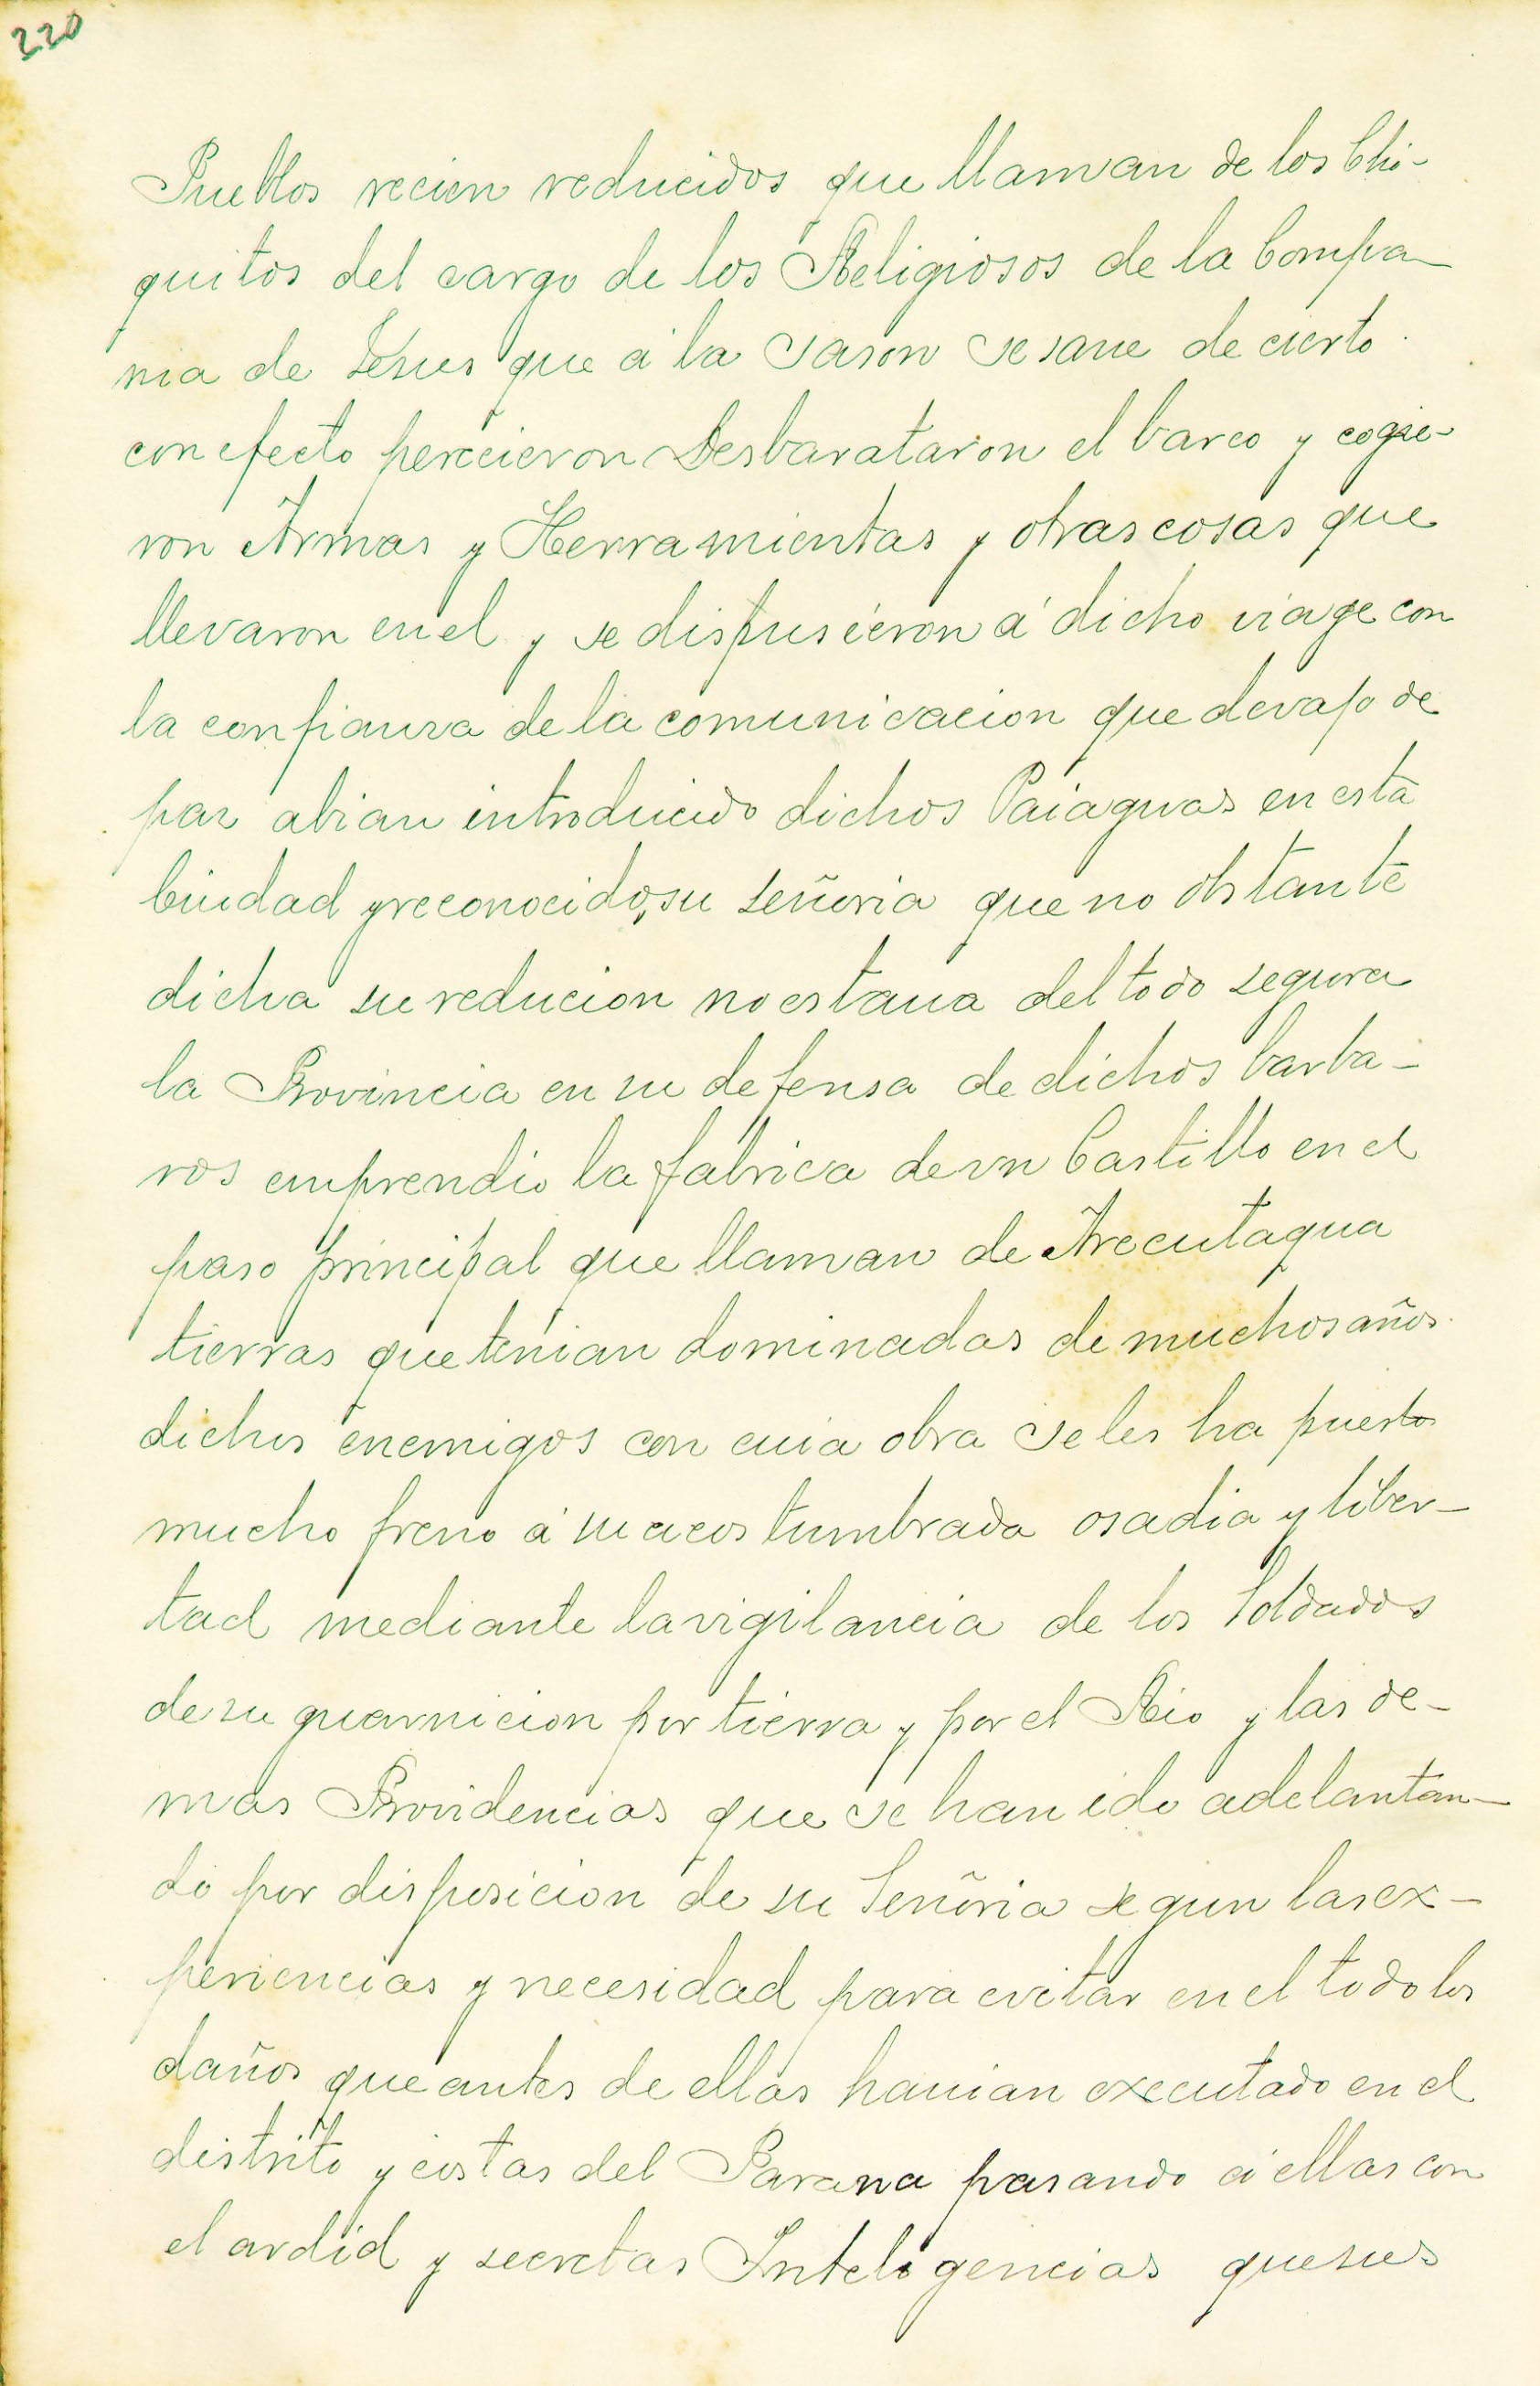 220
Pueblos recien reducidos que llaman de los Chi-
quitos del cargo de los Religiosos de la Compa-
nia de Jesus que á la sason se saue de cierto
con efecto perecieron Desbarataron el barco y cogie-
ron Armas y Herramientas y otras cosas que
llevaron en el y se dispusieron á dicho viage con
la confianza de la comunicacion que devajo de
paz abian introducido dichos Paiaguas en esta
Ciudad y reconocido, su Señoria que no obstante
dicha su reducion no estaua del todo segura
la Provincia en su defensa de dichos barba-
ros emprendio la fabrica de vn Castillo en el
paso principal que llaman de Arecutagua
tierras que tenian dominadas de muchos años
dichos enemigos con cuia obra se les ha puesto
mucho freno á su acostumbrada osadia y liber-
tad mediante la vigilancia de los Soldados
de su guarnicion por tierra y por el Rio y las de-
mas Providencias que se han ido adelantan-
do por disposicion de su Señoria segun las ex-
periencias y necesidad para evitar en el todo los
daños que antes de ellas hauian executado en el
distrito y costas del Parana pasando á ellas con
el ardid y secretas Inteligencias que sus